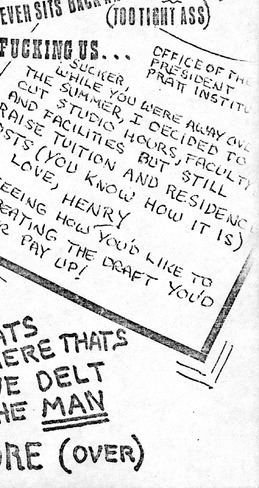 EVER SITS BACK
(TOO TIGHT ASS)
FUCKING US...
OFFICE OF THE
PRESIDENT
PRATT INSTITU
SUCKER,
WHILE YOU WERE AWAY OVE
THE SUMMER, I DECIDED TO
CUT STUDIO HOURS, FACULTY
AND FACILITIES BUT STILL
RAISE TUITION AND RESIDENC
OSTS (YOU KNOW HOW IT IS)
LOVE, HENRY
EEING HOW YOU'D LIKE TO
EATING THE DRAFT YOU'D
R PAY UP!
ATS
HERE THATS
VE DELT
HE MAN
ORE (OVER)